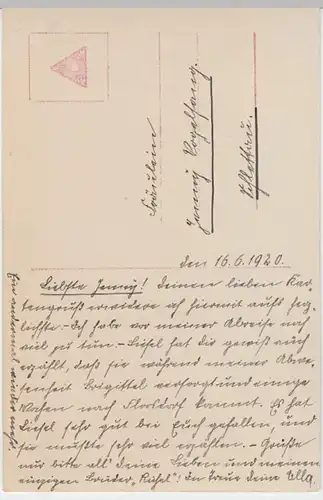 Fräulein
Jenny Vogelsang.
den 16.6.1920.
Liebste Jenny! Deinen lieben Kar-
tengruß erwidere ich hiermit aufs herz-
lichste. - Ich habe vor meiner Abreise noch
viel zu tun. - Liesel hat dir gewiß auch
erzählt, daß sie während meiner Abwe-
senheit Brigittel versorgt und einige
Wochen nach kommt. Es hat
Liesel sehr gut bei Euch gefallen, und
sie mußte sehr viel erzählen. - Grüße
nur bitte all' deine Lieben und meinen
einzigen Bruder, "". In Treue deine Ella.
Ein andermal wieder mehr.